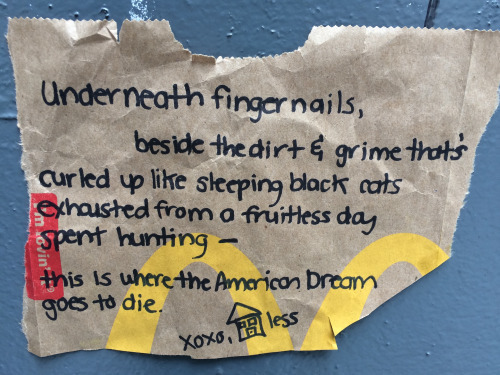 Underneath fingernails,
beside the dirt & grime that's
curled up like sleeping black cats
exhausted from a fruitless day
spent hunting —
this is where the American Dream
goes to die.
xoxo, less